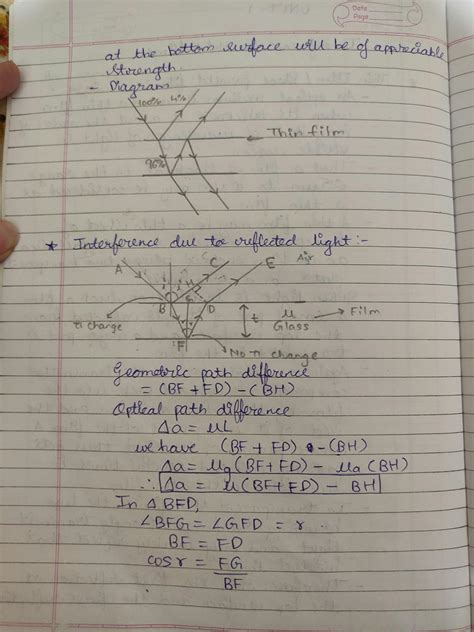 Date
Page
at the bottom surface will be of appreciable
strength.
- Diagram
100% 4%
Thin film
96%
* Interference due to reflected light :-
A i C E Air
B G H D
π change
t μ Glass → Film
F
No π change
Geometric path difference
= (BF + FD) - (BH)
Optical path difference
Δa = μL
we have (BF + FD) - (BH)
Δa = μg (BF + FD) - μa (BH)
∴ Δa = μ(BF + FD) - BH
In Δ BFD,
∠BFG = ∠GFD = r
BF = FD
cos r = FG
BF